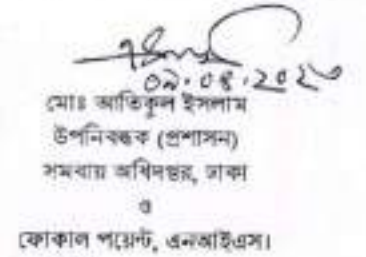 ০৯.০৪.২০২৩
মোঃ আতিকুল ইসলাম
উপনিবন্ধক (প্রশাসন)
সমবায় অধিদপ্তর, ঢাকা
ও
ফোকাল পয়েন্ট, এনআইএস।